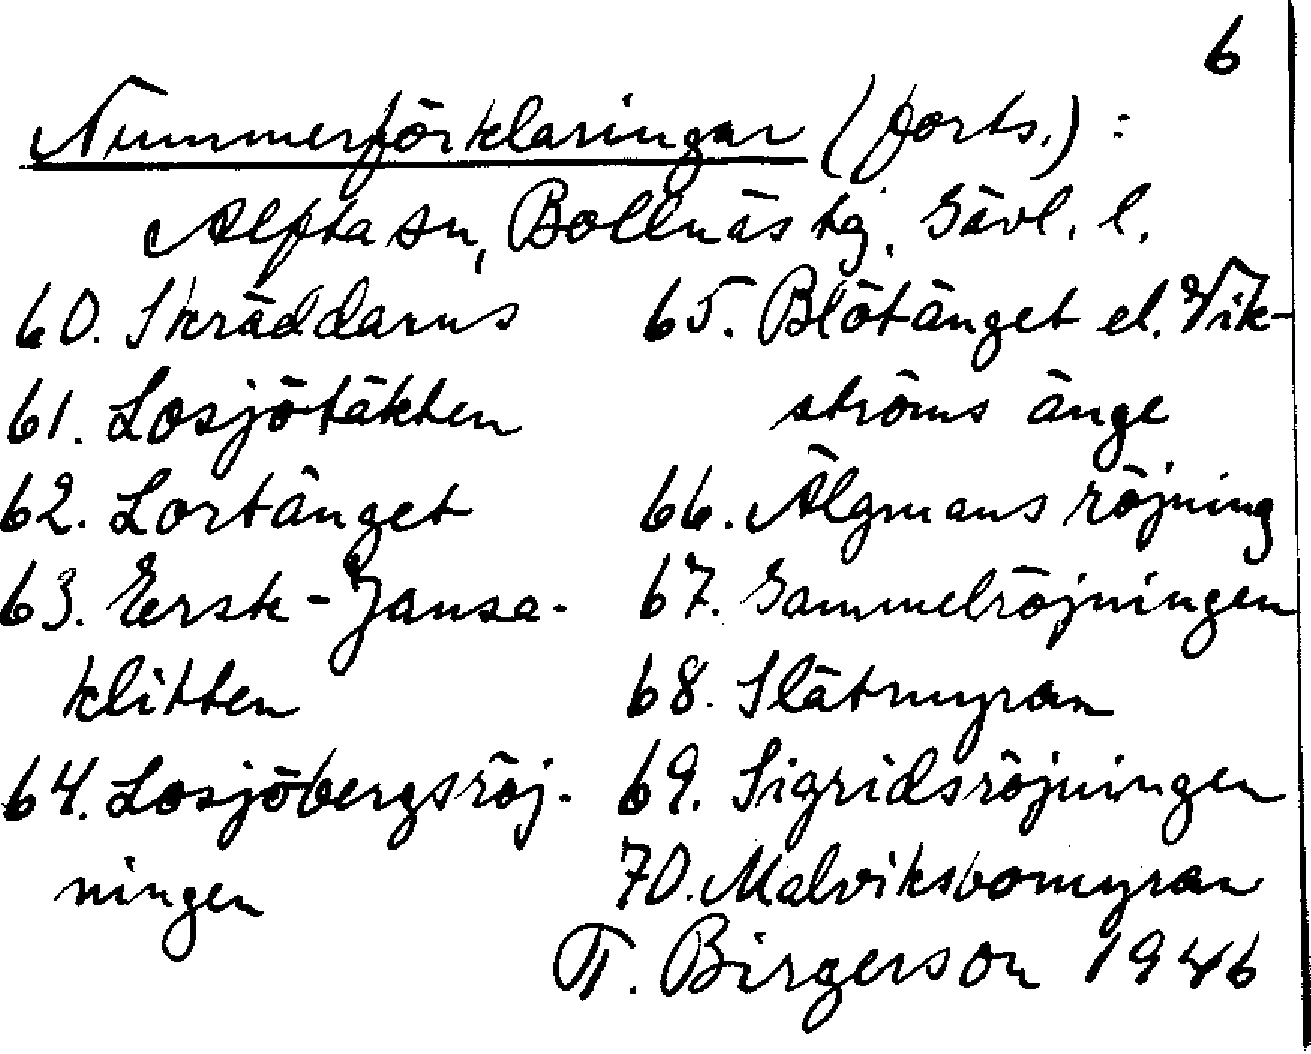 6
Nummerförklaringar (forts.) :
Alfta sn, Bollnäs tg. Gävl. l.
60. Skräddarns
61. Losjötäkten
62. Lortänget
63. Ersk-Jansa-
klitten
64. Losjöbergsröj-
ningen
65. Blötänget el. Vik-
ströms änge
66. Älgmans röjning
67. Gammelröjningen
68. Slåtmyran
69. Sigridsröjningen
70. Malviksbomyran
T. Birgerson 1946